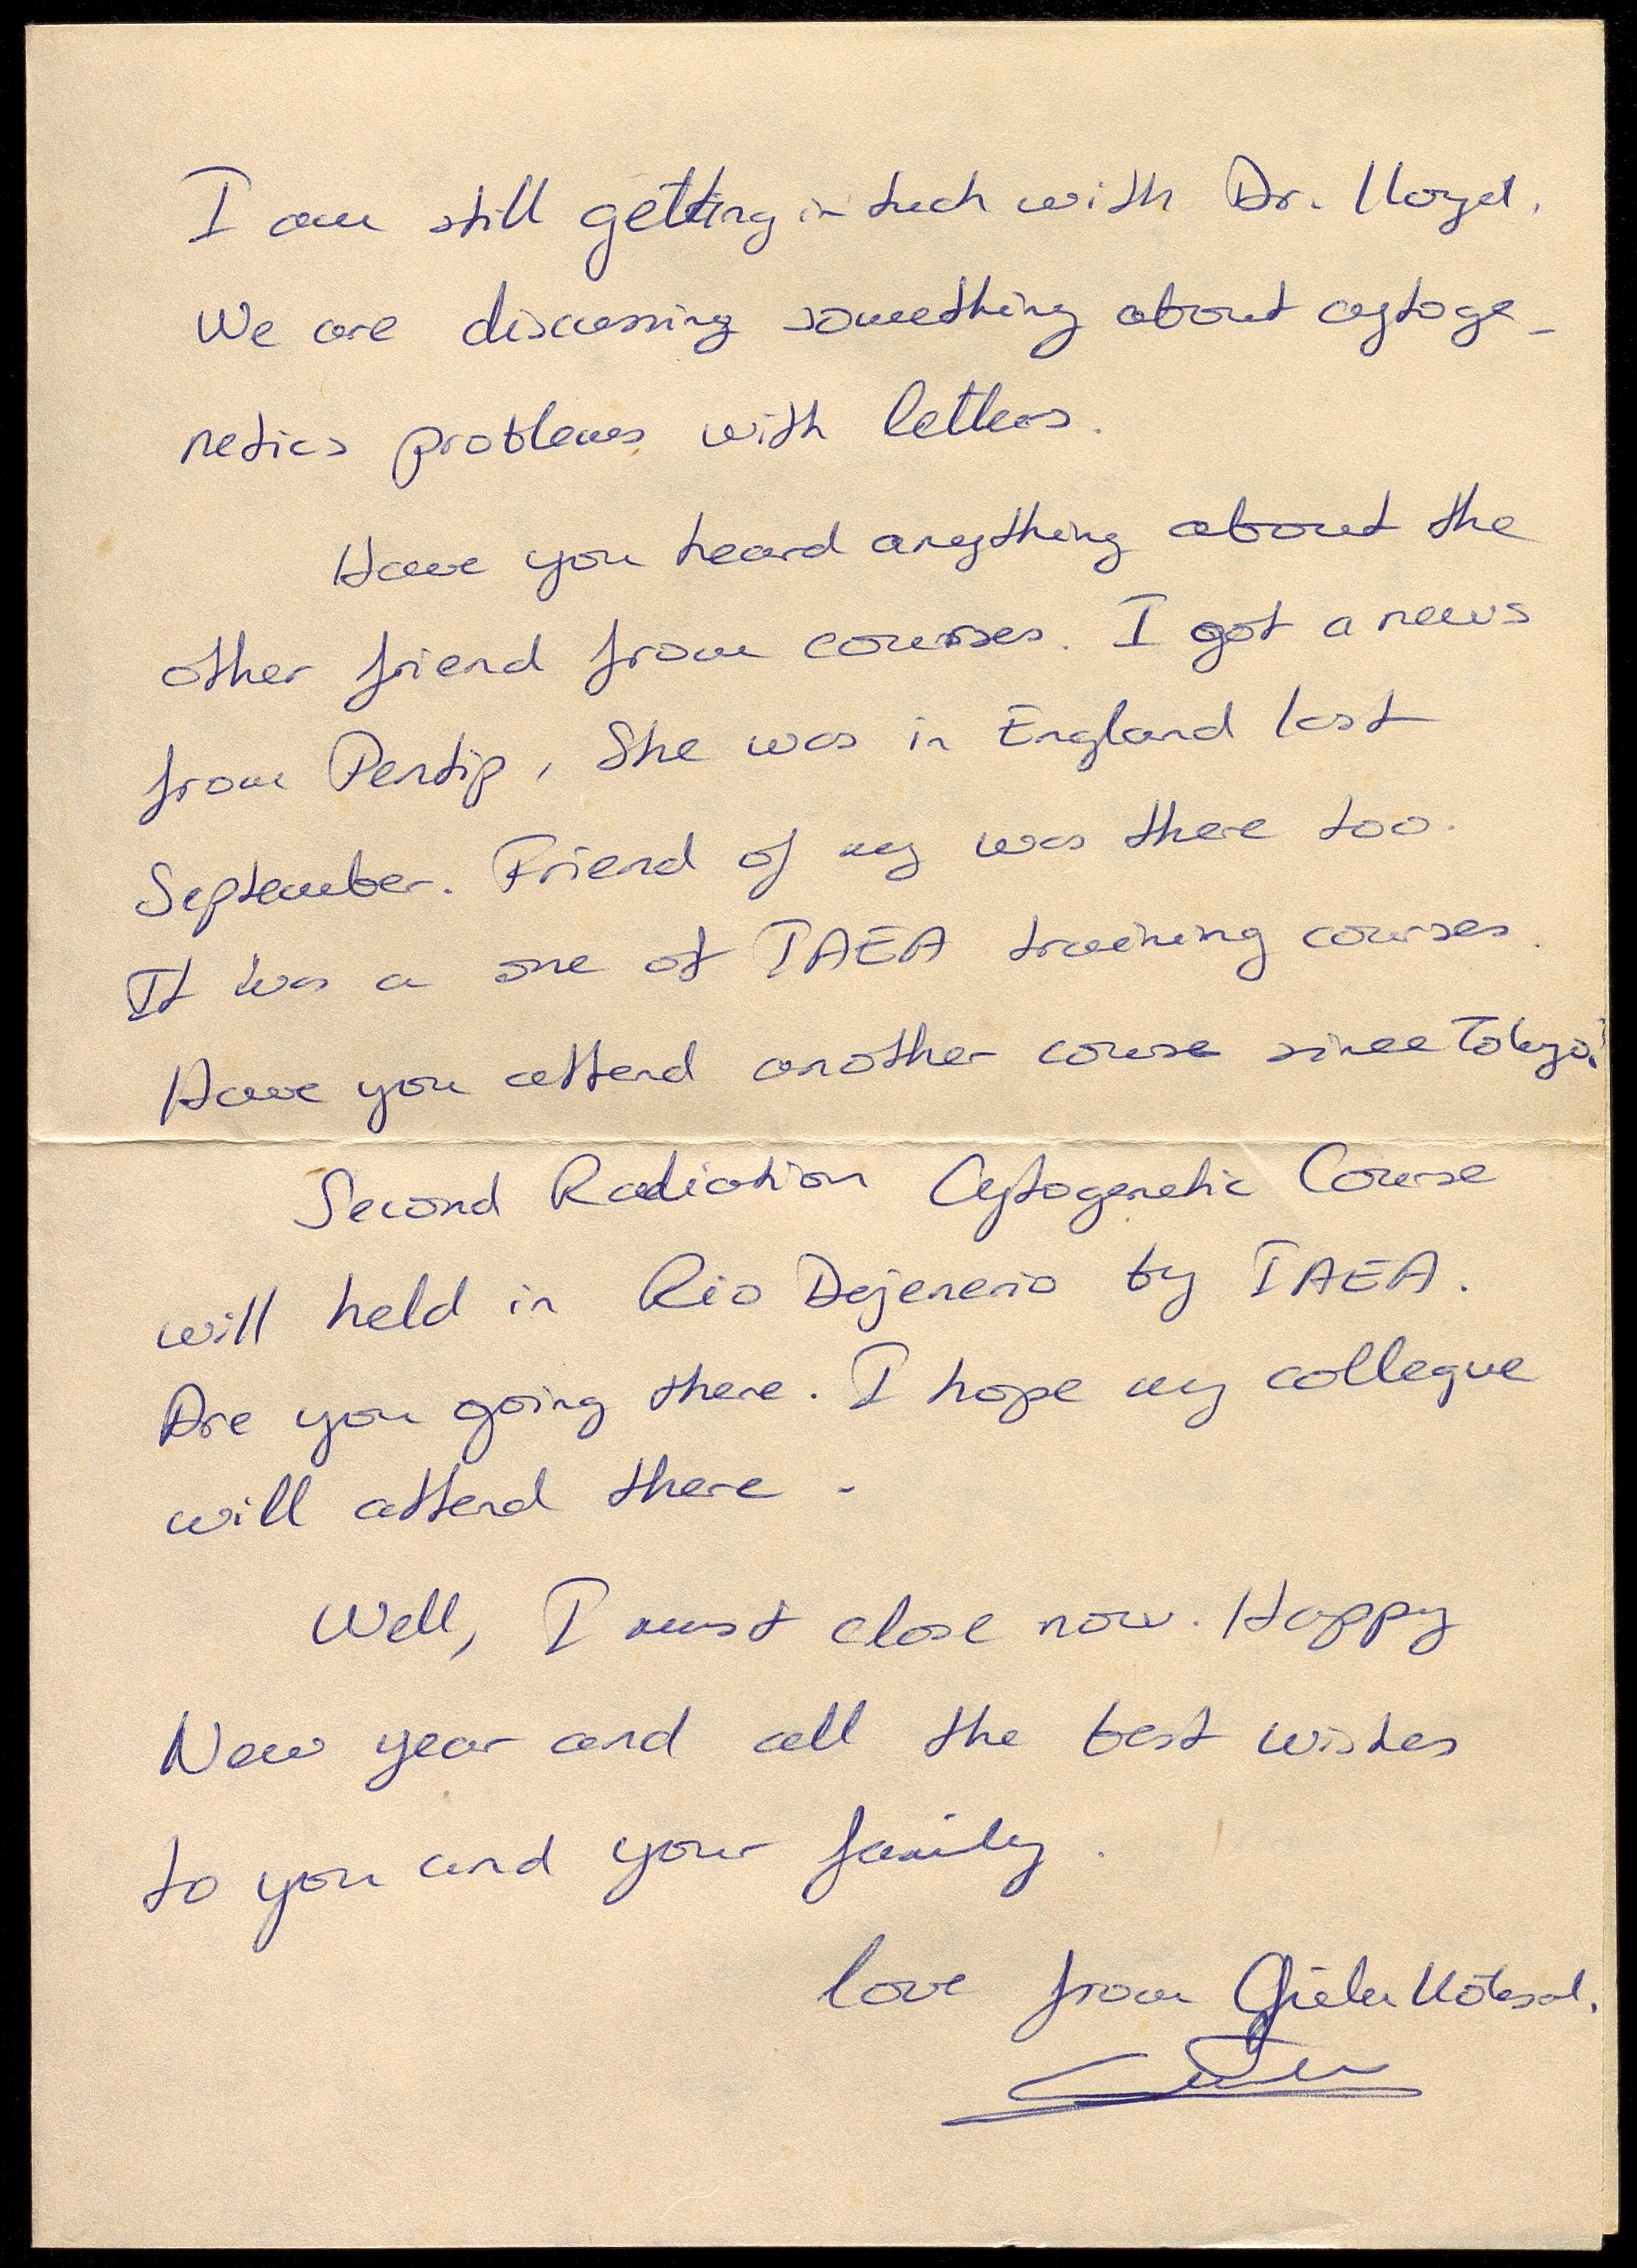 I am still getting in tuch with Dr. Lloyd.
We are discussing something about cytoge-
netics problems with letters.
Have you heard anything about the
other friend from courses. I got a news
from Pentip, She was in England last
September. Friend of my was there too.
It was a one of IAEA training courses.
Have you attend another course since Tokyo?
Second Radiation Cytogenetic Course
will held in Rio Dejenerio by IAEA.
Are you going there. I hope my collegue
will attend there.
Well, I must close now. Happy
New year and all the best wishes
to you and your family.
love from Köksal.